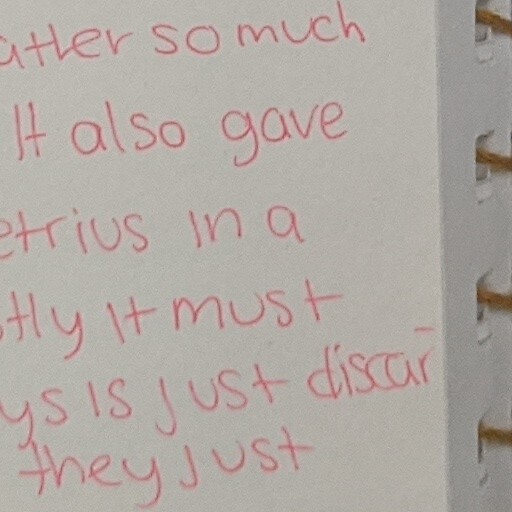 atter so much
It also gave
etrius in a
tly It must
ys Is just discar-
they just